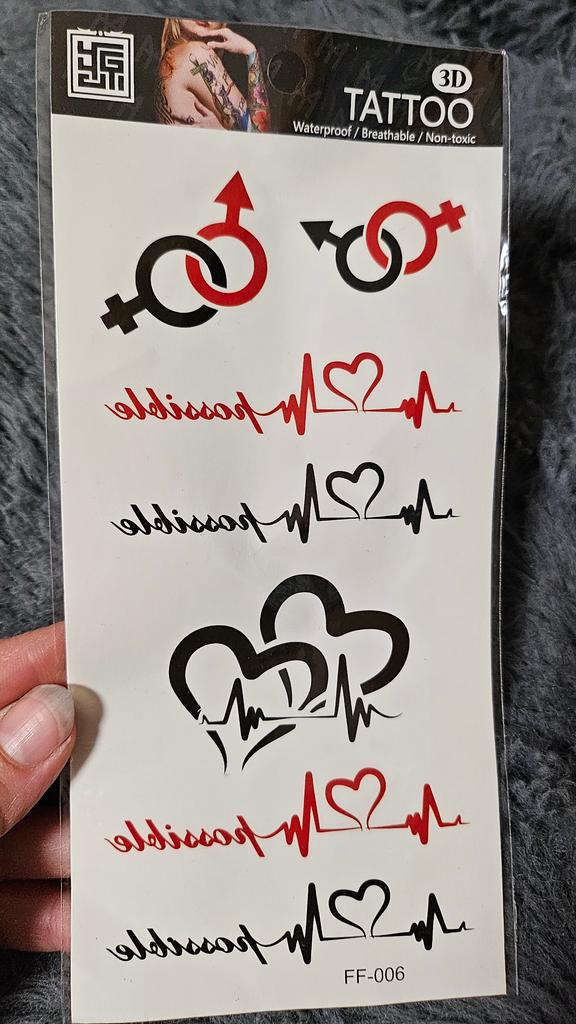 3D
TATTOO
Waterproof / Breathable / Non-toxic
possible
possible
possible
possible
FF-006